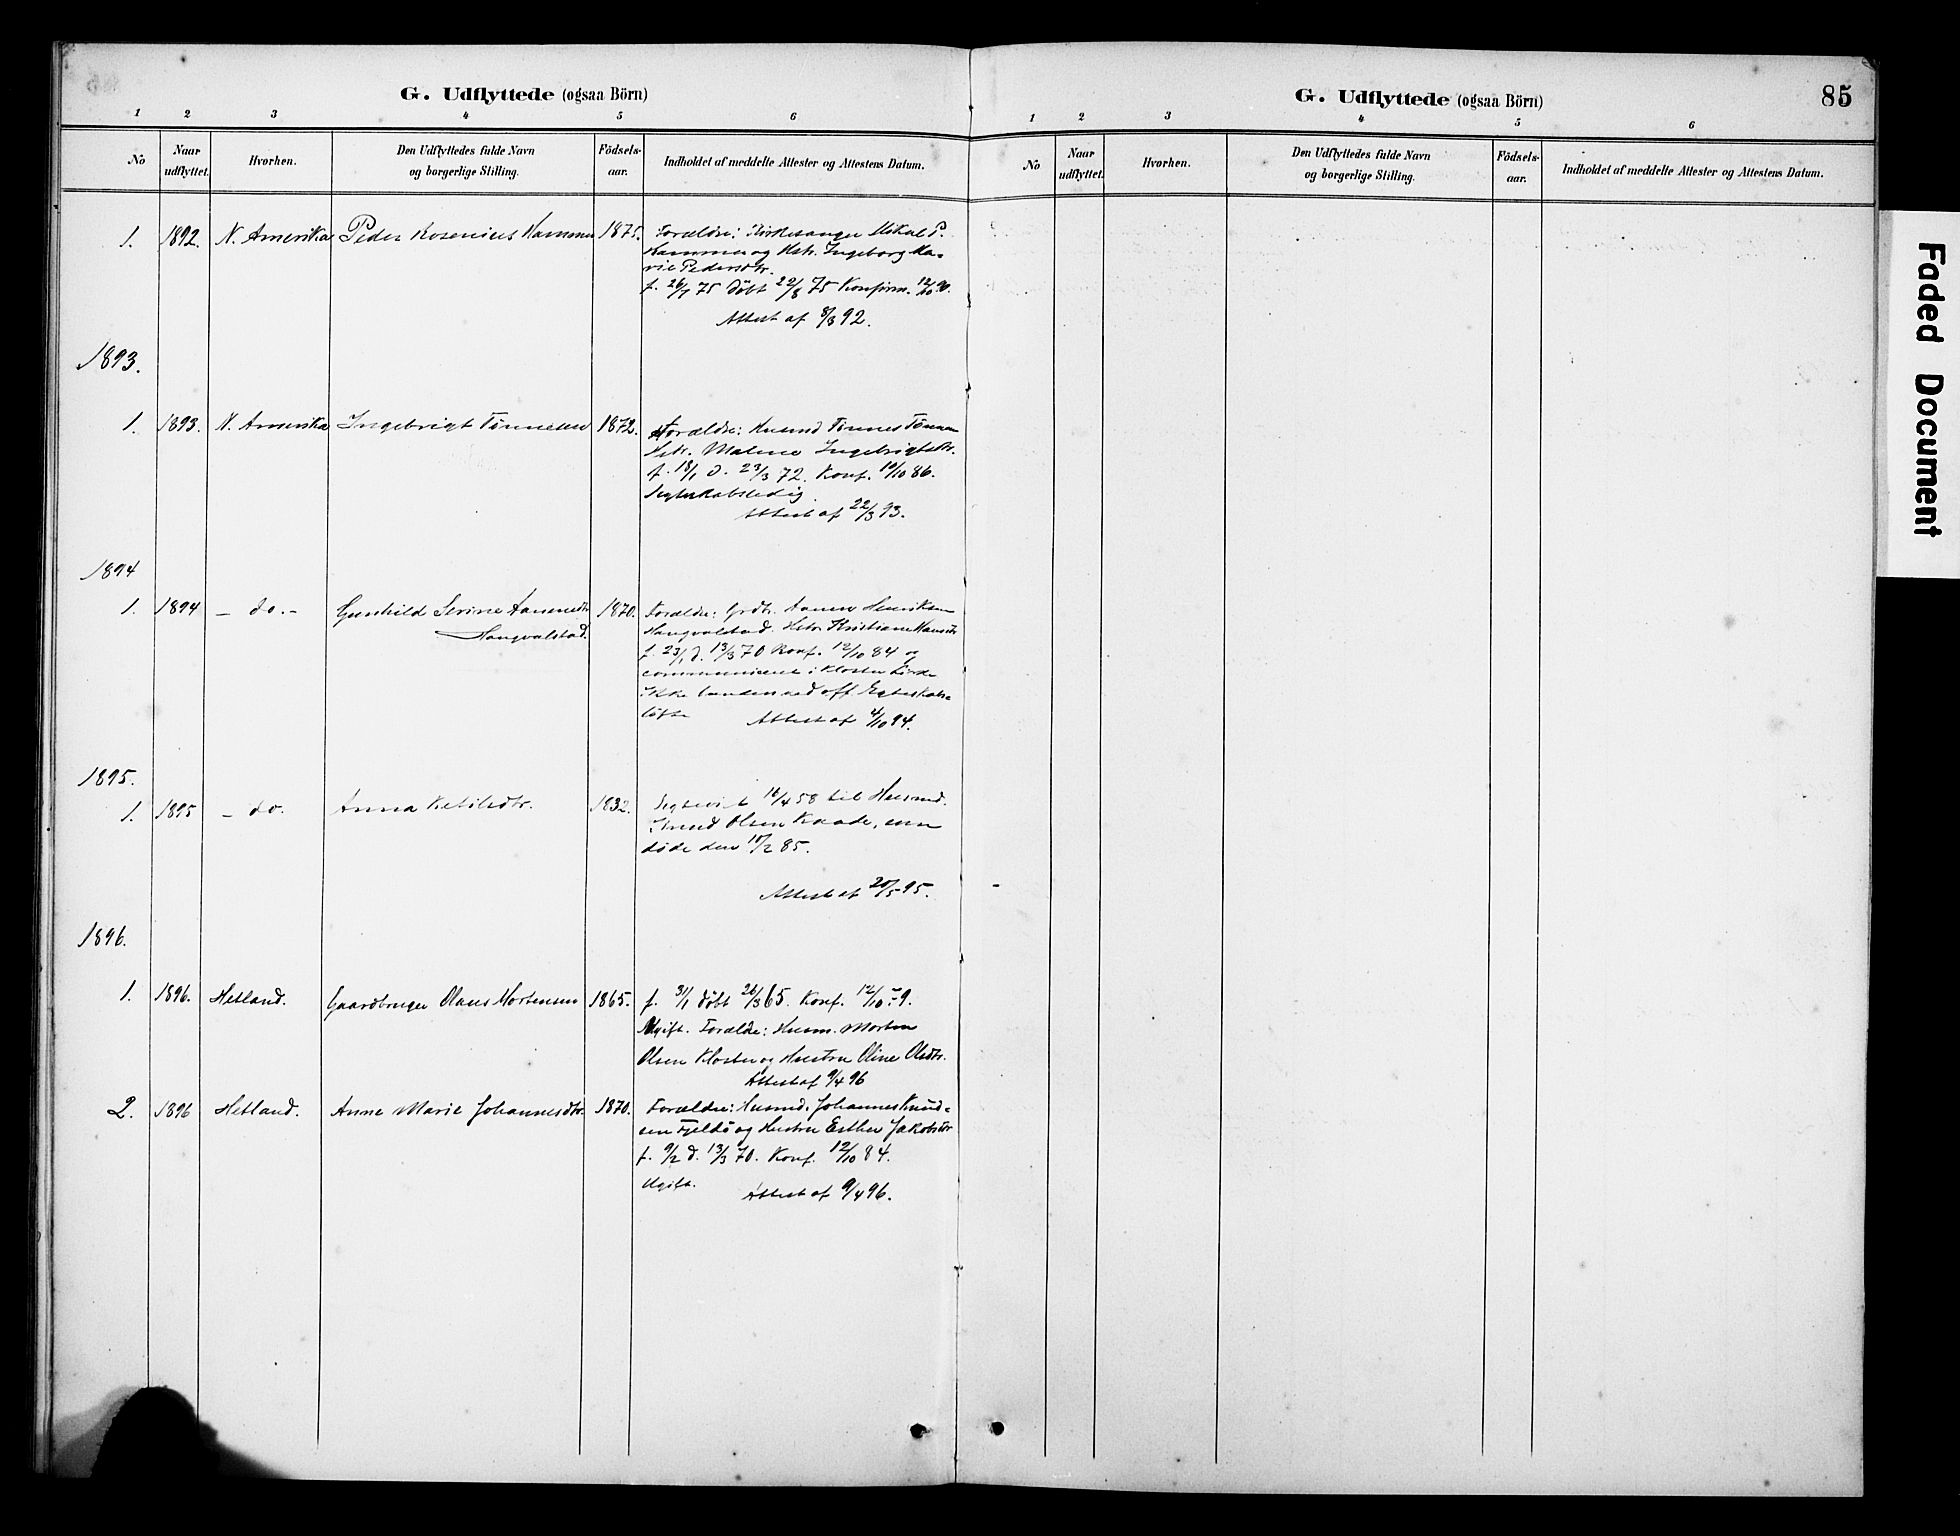 G. Udflyttede (ogsaa Börn)
1 2 3 4 5 6
No Naar udflyttet. Hvorhen. Den Udflyttedes fulde Navn og borgerlige Stilling. Födsels-aar. Indholdet af meddelte Attester og Attestens Datum.
1. 1892. N. Amerika Peder Rosenius Hammer 1875. Forældre: Kirkesanger Mikal P.
Hammer og Hstr. Ingeborg Ma-
rie Pedersdtr.
f. 26/7 75 døbt 22/8 75 Konfirm. 12/10 90.
Attest af 8/3 92.
1893.
1. 1893. N. Amerika Ingebrigt Tønnesen 1872. Forældre: Husmd Tønnes Tønnesen
Hstr. Malene Ingebrigtsdtr.
f. 18/1 d. 23/3 72. Konf. 10/10 86.
Ægteskabsledig.
Attest af 22/3 93.
1894
1. 1894 - do. - Gunhild Serine Aanensdtr 1870. Forældre: Grdbr. Aanen Henriksen
Hangvalstad. Hangvalstad. Hstr Kristiane Hansdtr
f. 23/1 d. 13/3 70 Konf. 12/10 84 og
communiceret i Kloster Kirke
ikke bunden ved off. Egteskabs-
løfte Attest af 4/10 94.
1895.
1. 1895 - do. Anna Ketilsdtr. 1832. Egteviet 16/4 58 til Husmd.
Knud Olsen Kaade, som
døde den 15/2 85.
Attest af 20/5 95.
1896.
1. 1896. Hetland. Gaardbruger Olaus Mortensen 1865. f. 31/1 døbt 26/3 65. Konf. 12/10 79.
Ugift. Forældre: Husm. Morten
Olsen Kloster og Hustru Oline Olsdtr.
Attest af 9/4 96
2. 1896 Hetland. Anne Marie Johannesdtr. 1870. Forældre: Husmd. Johannes Knud-
sen Fjeldø og Hustru Esther Jakobsdtr
f. 9/2 d. 13/3 70. Konf. 12/10 84.
Ugift. Attest af 9/4 96.
G. Udflyttede (ogsaa Börn) 85
1 2 3 4 5 6
No Naar udflyttet. Hvorhen. Den Udflyttedes fulde Navn og borgerlige Stilling. Födsels-aar. Indholdet af meddelte Attester og Attestens Datum.
Faded Document